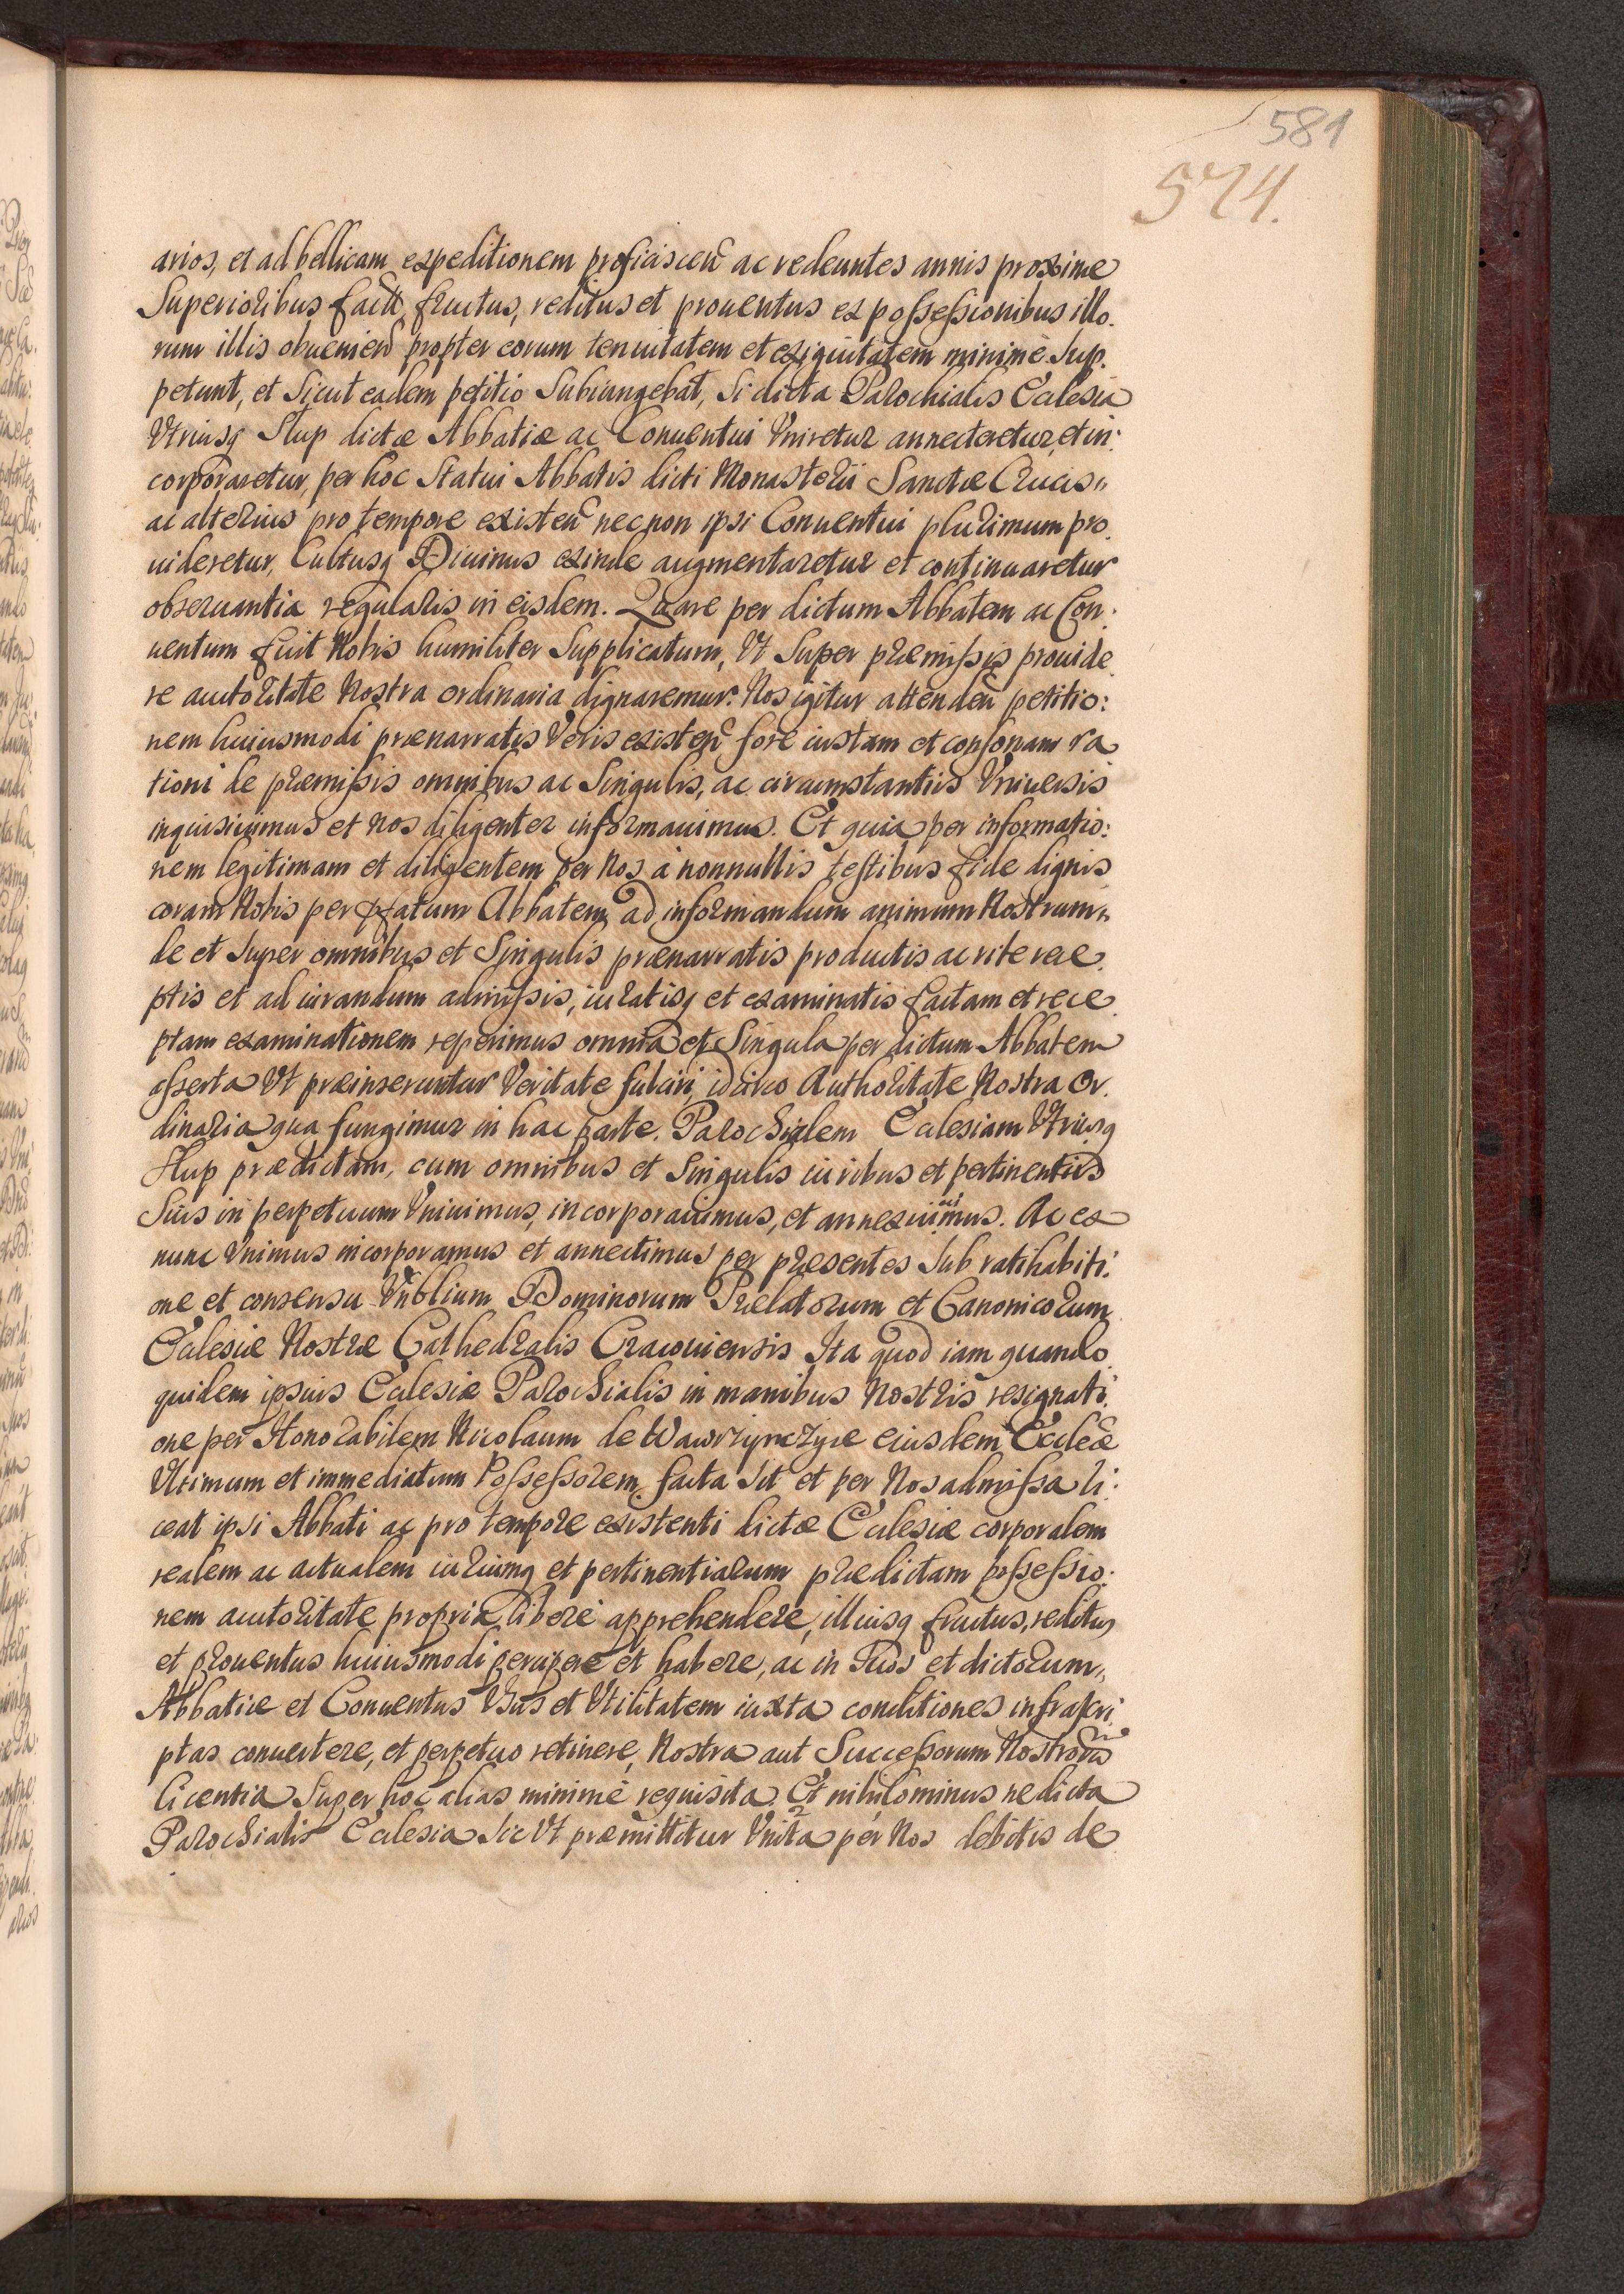 581
574.
arios, et ad bellicam expeditionem proficisceñ ac redeuntes annis proxime
Superioribus fact̃ fructus, reditus et prouentus ex possessionibus illo.
rum illis obueniend̃ propter eorum tenuitatem et exiguitatem minimè Sup.
petunt, et Sicut eadem petitio Subiungebat, Si dicta Parochialis Ecclesia
Vtriusq Slup dictæ Abbatiæ ac Conuentui Vniretur annecteretur, et in:
corporaretur, per hoc Statui Abbatis dicti Monasterii Sanctæ Crucis„
ac alterius pro tempore existeñ necnon ipsi Conuentui plurimum pro.
uideretur, Cultusq Diuinus exinde augmentaretur et continuaretur
obseruantia regularis in eisdem. Quare per dictum Abbatem ac Con:
uentum fuit Nobis humiliter Supplicatum, Vt Super præmissis prouide.
re auctoritate Nostra ordinaria dignaremur. Nos igitur attendeñ petitio:
nem huiusmodi prænarratis Veris existeñ fore iustam et consonam ra
tioni de præmissis omnibus ac Singulis, ac circumstantiis Vniuersis
inquisiuimus et nos diligenter informauimus. Et quia per informatio:
nem legitimam et diligentem per Nos à nonnullis testibus fide dignis
coram Nobis per pfatum Abbatem ad informandum animum Nostrum„
de et Super omnibus et Singulis prænarratis productis ac rite rece.
ptis et ad iurandum admissis, iuratisq et examinatis factam et rece.
ptam examinationem reperimus omnia et Singula per dictum Abbatem
asserta Vt præinseruntur Veritate fulciri, idcirco Authoritate Nostra Or.
dinaria qua fungimur in hac parte. Parochialem Ecclesiam Vtriusq
Slup prædictam, cum omnibus et Singulis iuribus et pertinentiis
Suis in perpetuum Vniuimus, incorporauimus, et annexuimus. Ac ex
nunc Vnimus incorporamus et annectimus per præsentes Sub ratihabiti:
one et consensu Vnblium Dominorum Prælatorum et Canonicorum
Ecclesiæ Nostræ Cathedralis Cracouiensis Ita quod iam quando.
quidem ipsius Ecclesiæ Parochialis in manibus Nostris resignati:
one per Honorabilem Nicolaum de Wawrzynczyce eiusdem Eccleæ
Vltimum et immediatum Possessorem facta Sit et per Nos admissa li:
ceat ipsi Abbati ac pro tempore existenti dictæ Ecclesiæ corporalem
realem ac actualem iuriumq et pertinentiarum prædictam possessio:
nem auctoritate propria liberè apprehendere, illiusq fructus, reditus
et prouentus huiusmodi percipere et habere, ac in Suos et dictorum„
Abbatiæ et Conuentus Vsus et Vtilitatem iuxta conditiones infrascri:
ptas conuertere, et perpetuo retinere, Nostra aut Successorum Nostrorũ
licentia Super hoc alias minimè requisita. Et nihilominus ne dicta
Parochialis Ecclesia Sic Vt præmittitur Vnita per Nos debitis de